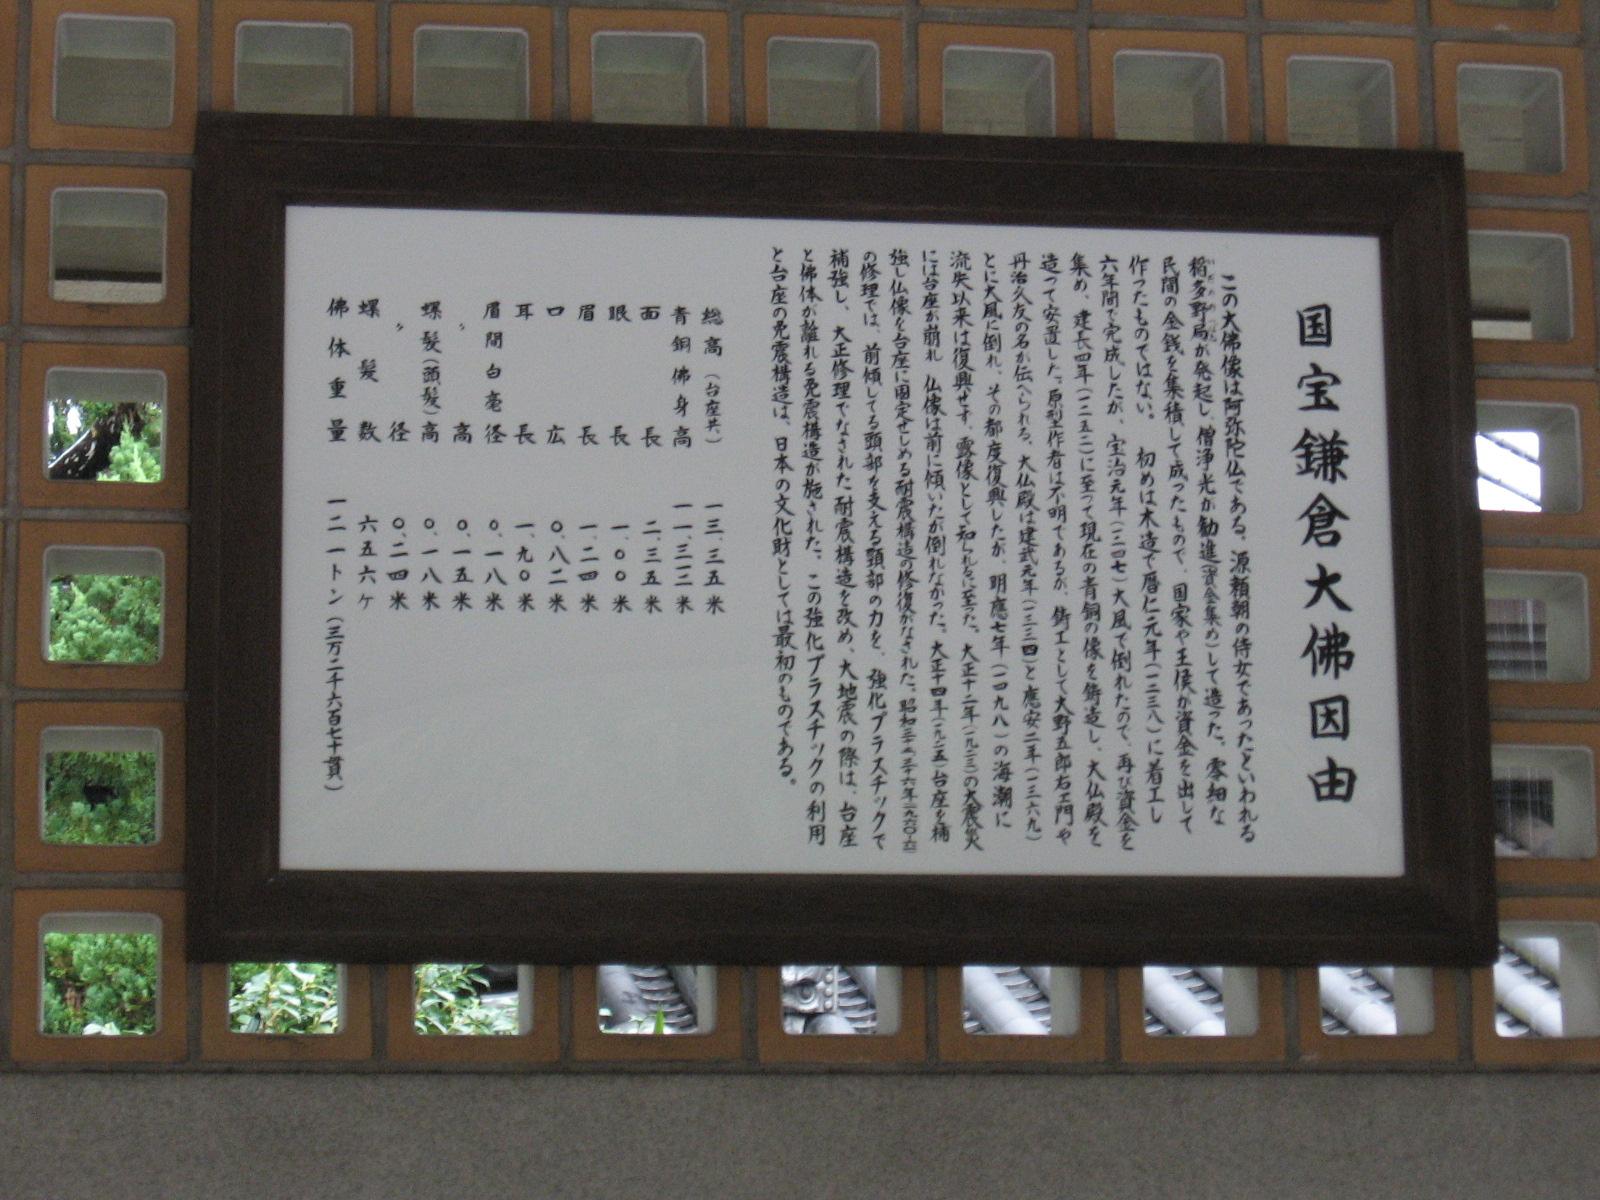 国宝鎌倉大佛因由
この大佛像は阿弥陀仏である。源頼朝の侍女であったといわれる
稲多野局が発起し、僧浄光が勧進(資金集め)して造った。零細な
民間の金銭を集積して成ったもので、国家や王侯が資金を出して
作ったものではない。初めは木造で暦仁元年(一二三八)に着工し
六年間で完成したが、宝治元年(一二四七)大風で倒れたので、再び資金を
集め、建長四年(一二五二)に至って現在の青銅の像を鋳造し、大仏殿を
造って安置した。原型作者は不明であるが、鋳工として大野五郎右エ門や
丹治久友の名が伝へられる。大仏殿は建武元年(一三三四)と應安二年(一三六九)
とに大風に倒れ、その都度復興したが、明應七年(一四九八)の海潮に
流失以来は復興せず、露像として知られるに至った。大正十二年(一九二三)の大震災
には台座が崩れ 仏像は前に傾いたが倒れなかった。大正十四年(一九二五)台座を補
強し仏像を台座に固定せしめる耐震構造の修復がなされた。昭和三十五・三十六年(一九六〇-六一)
の修理では、前傾してる頭部を支える頸部の力を、強化プラスチックで
補強し、大正修理でなされた耐震構造を改め、大地震の際は、台座
と佛体が離れる免震構造が施された。この強化プラスチックの利用
と台座の免震構造は、日本の文化財としては最初のものである。
総高(台座共) 一三.三五米
青銅佛身高 一一.三一二米
面長 二.三五米
眼長 一.〇〇米
眉長 一.二四米
口広 〇.八二米
耳長 一.九〇米
眉間白毫径 〇.一八米
〃高 〇.一五米
螺髪(頭髪)高 〇.一八米
〃径 〇.二四米
螺髪数 六五六ケ
佛体重量 一二一トン(三万二千六百七十貫)